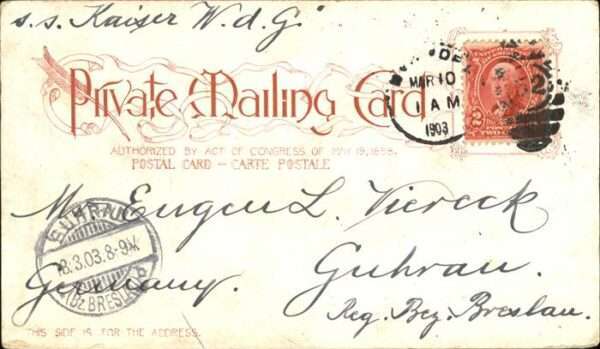 s.s. Kaiser W. d. G.
Private Mailing Card
AUTHORIZED BY ACT OF CONGRESS OF MAY 19, 1898.
POSTAL CARD – CARTE POSTALE
MAR 10
1 AM
1903
2
Mr Eugen L. Viereck
GUHRAU
18.3.03.8-9V.
(BZ BRESLAU)
Guhrau.
Germany.
Reg. Bez. Breslau.
THIS SIDE IS FOR THE ADDRESS.